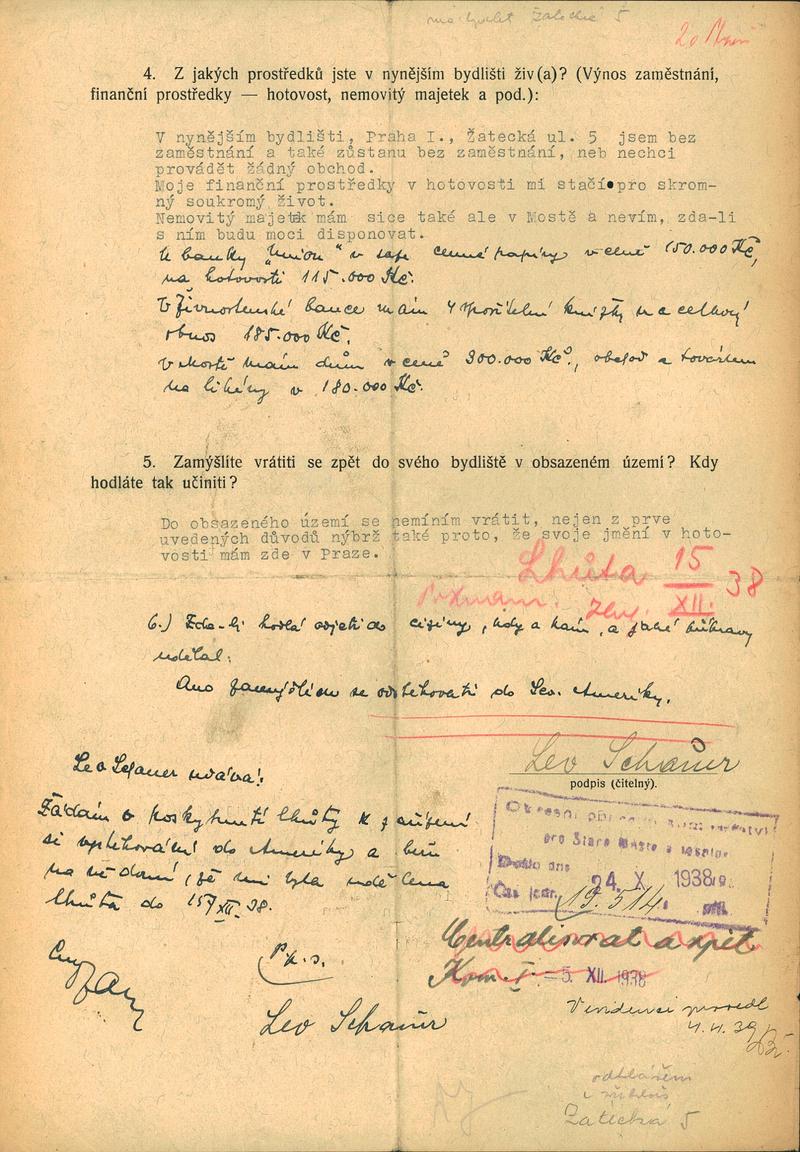 Žatecká 5
4. Z jakých prostředků jste v nynějším bydlišti živ(a)? (Výnos zaměstnání,
finanční prostředky — hotovost, nemovitý majetek a pod.):
V nynějším bydlišti, Praha I., Žatecká ul. 5 jsem bez
zaměstnání a také zůstanu bez zaměstnání, neb nechci
provádět žádný obchod.
Moje finanční prostředky v hotovosti mi stačí pro skrom-
ný soukromý život.
Nemovitý majetek mám sice také ale v Mostě a nevím, zda-li
s ním budu moci disponovat.
U banky "Union" v safe cenné papíry v ceně 150.000 Kč,
na hotovosti 115.000 Kč.
V Živnostenské bance mám 4 spořitelní knížky na celkový
obnos 185.000 Kč.
V Mostě mám dům v ceně 300.000 Kč, obchod s továrnou
na likéry v 180.000 Kč.
5. Zamýšlíte vrátiti se zpět do svého bydliště v obsazeném území? Kdy
hodláte tak učiniti?
Do obsazeného území se nemíním vrátit, nejen z prve
uvedených důvodů nýbrž také proto, že svoje jmění v hoto-
vosti mám zde v Praze.
Lhůta 15/XII. 38
Poznam.
6.) Zda-li hodlá odjeti do ciziny, kdy a kam, a jaké přípravy
udělal:
Ano zamýšlím se odstěhovati do Sev. Ameriky.
Lev Schauer
podpis (čitelný).
Leo Schauer udává:
Žádám o poskytnutí lhůty k zařízení
si vystěhování do Ameriky a beru
na vědomí, že mi byla udělena
lhůta do 15/XII. 38.
24. X. 1938
19.514
P.k.s.
Lev Schauer
Centralisovat a zpět
Kom. I. - 5. XII. 1938
V evidenci provedl
4.4.39
odhlášen
Žatecká 5